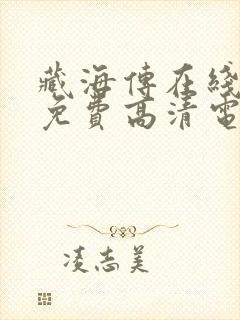 藏海傳在綫
免費高清電
凌志美